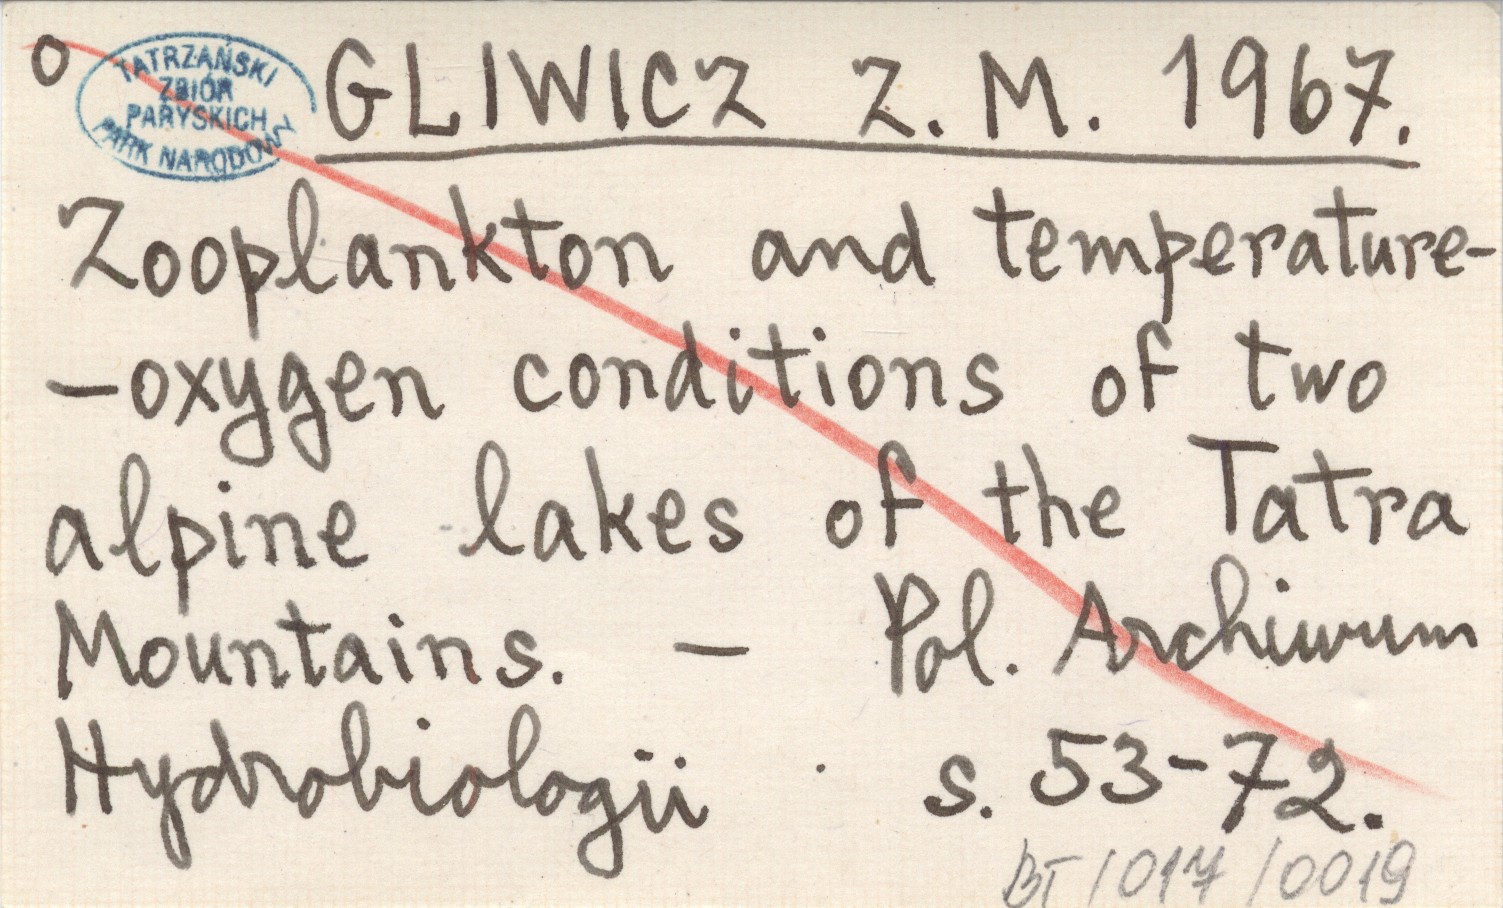 O
TATRZAŃSKI
ZBIÓR
PARYSKICH
PARK NARODOWY
GLIWICZ Z. M. 1967.
Zooplankton and temperature-
-oxygen conditions of two
alpine lakes of the Tatra
Mountains. — Pol. Archiwum
Hydrobiologii s. 53-72.
BT/017/0019